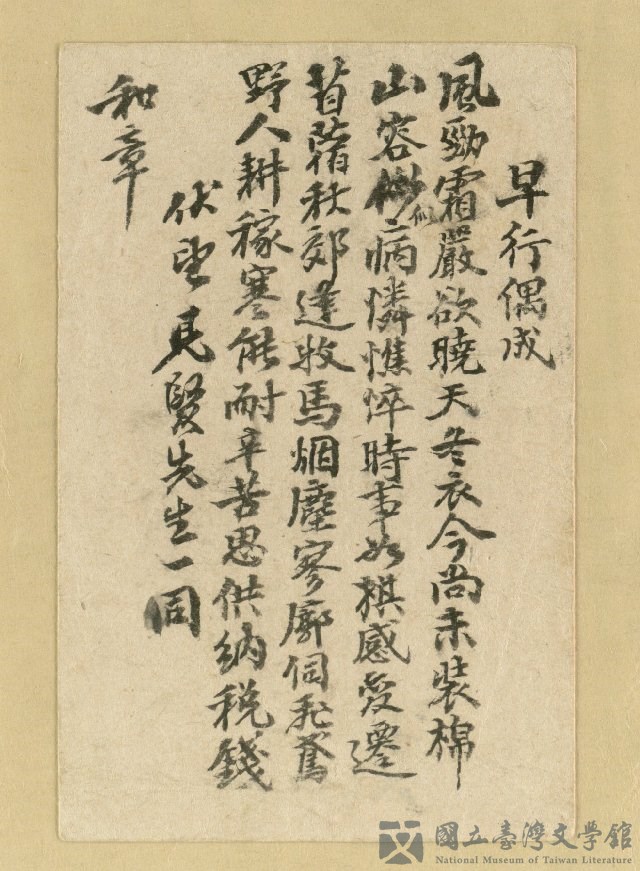 早行偶成
風勁霜嚴欲曉天冬衣今尚未裝棉
山容似病憐憔悴時事如棋感變遷
苜蓿秋郊逢牧馬烟塵寥廓伺飛鳶
野人耕稼寒能耐辛苦思供納稅錢
伏望見賢先生一同
和章
國立臺灣文學館
National Museum of Taiwan Literature